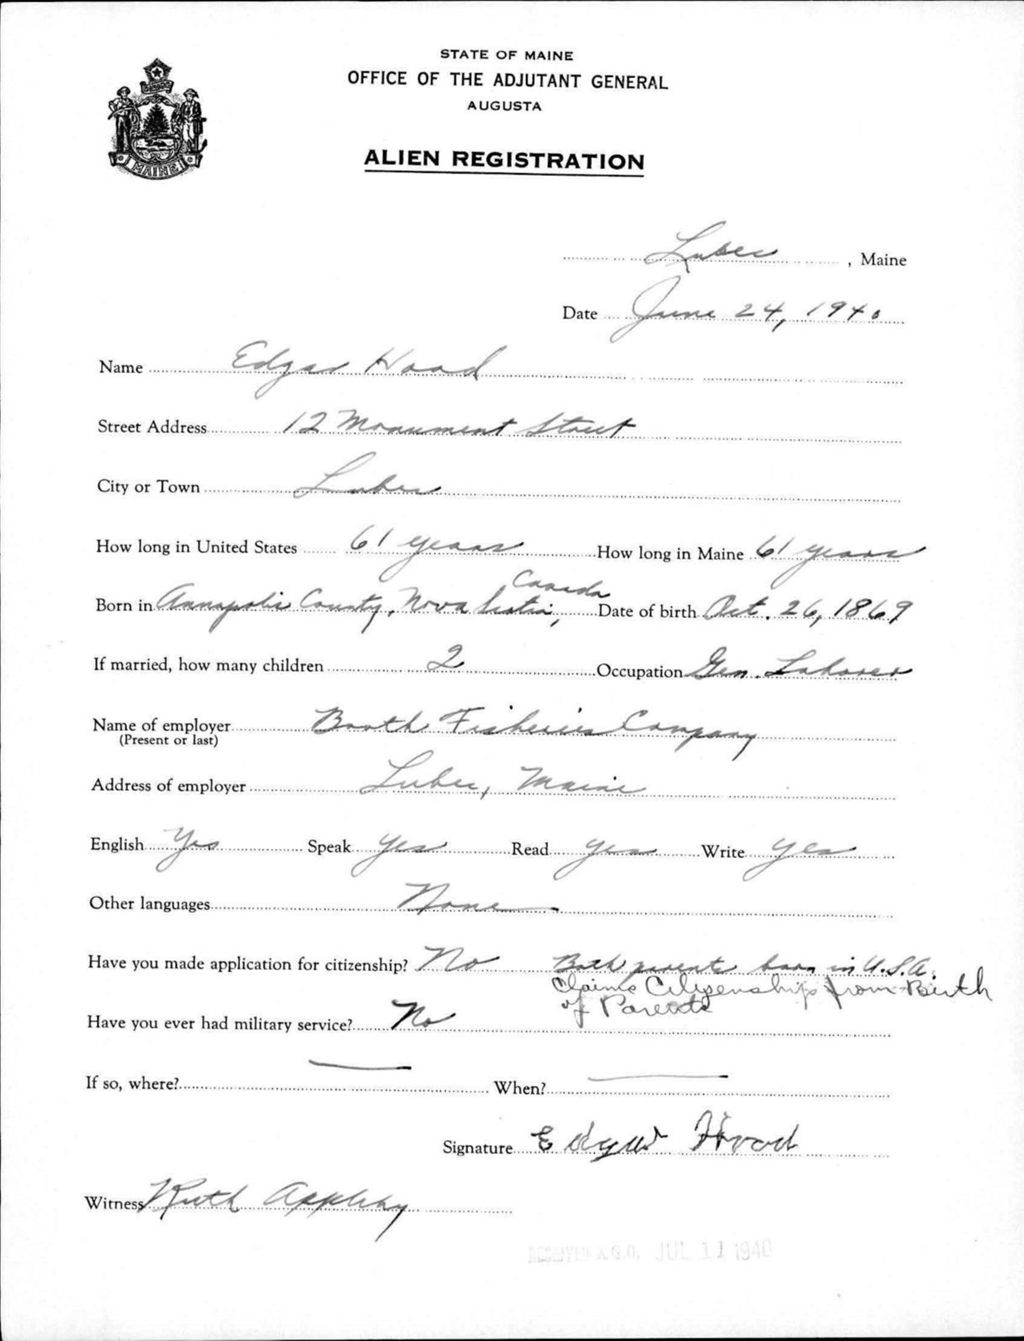 STATE OF MAINE
OFFICE OF THE ADJUTANT GENERAL
AUGUSTA
MAINE
ALIEN REGISTRATION
Lubec, Maine
Date June 24, 1940
Name Edgar Hood
Street Address 12 Monument Street
City or Town Lubec
How long in United States 61 years How long in Maine 61 years
Born in Annapolis County, Nova Scotia, Canada Date of birth Oct. 26, 1869
If married, how many children 2 Occupation Gen. Laborer
Name of employer Booth Fisheries Company
(Present or last)
Address of employer Lubec, Maine
English Yes Speak Yes Read Yes Write Yes
Other languages None
Have you made application for citizenship? No Both parents born in U.S.A.
Claims Citizenship from Birth
of Parents
Have you ever had military service? No
If so, where? When?
Signature Edgar Hood
Witness Ruth Appleby
RECEIVED A.G.O. JUL 11 1940